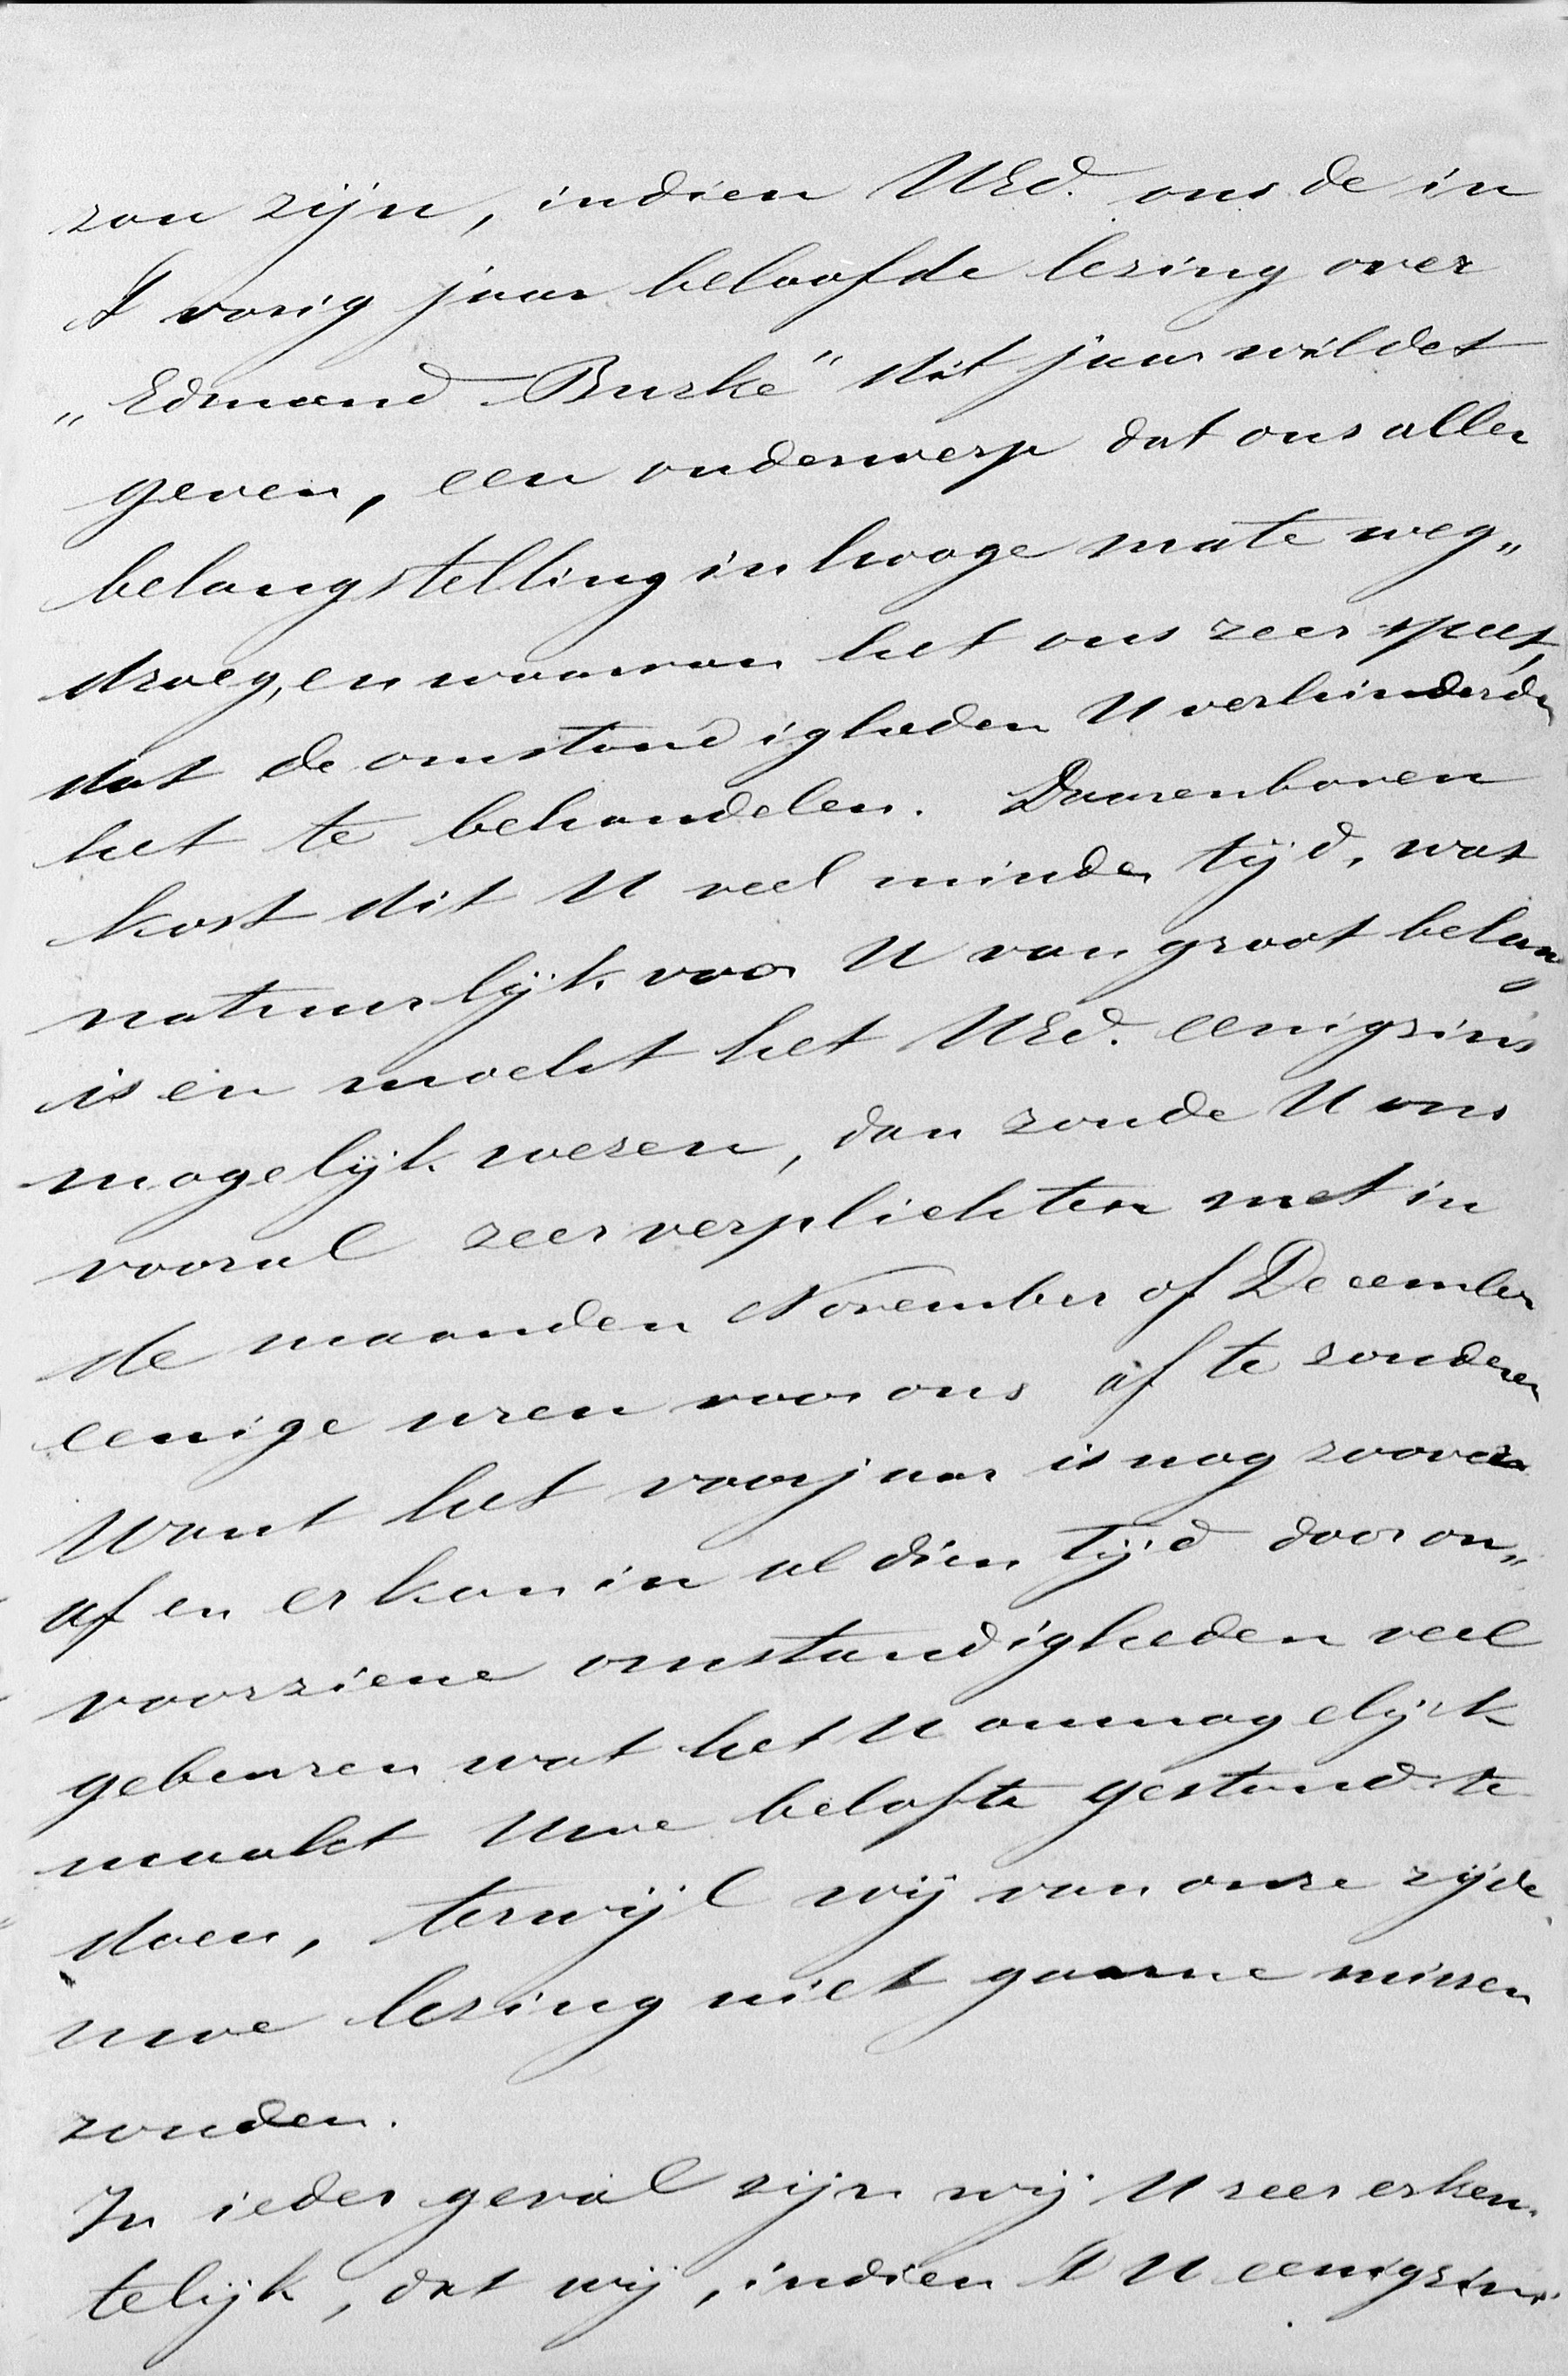 zou zijn, indien UEd. ons de in
't vorig jaar beloofde lezing over
„Edmund Burke" dit jaar wildet
geven, een onderwerp dat ons aller
belangstelling in hooge mate weg„
droeg, en waarvan het ons zeer speet,
dat de omstandigheden U verhinderden
het te behandelen. Daarenboven
kost dit U veel minder tijd, wat
natuurlijk voor U van groot belang
is en mocht het UEd. eenigzins
mogelijk wezen, dan zoude U ons
vooral zeer verplichten met in
de maanden November of December
eenige uren voor ons af te zonderen
Want het voorjaar is nog zoover
af en er kan in al dien tijd door on„
voorziene omstandigheden veel
gebeuren wat het U onmogelijk
maakt Uwe belofte gestand te
doen, terwijl wij van onze zijde
uwe lezing niet gaarne missen
zouden.
In ieder geval zijn wij U zeer erken-
telijk, dat wij, indien 't U eenigzins